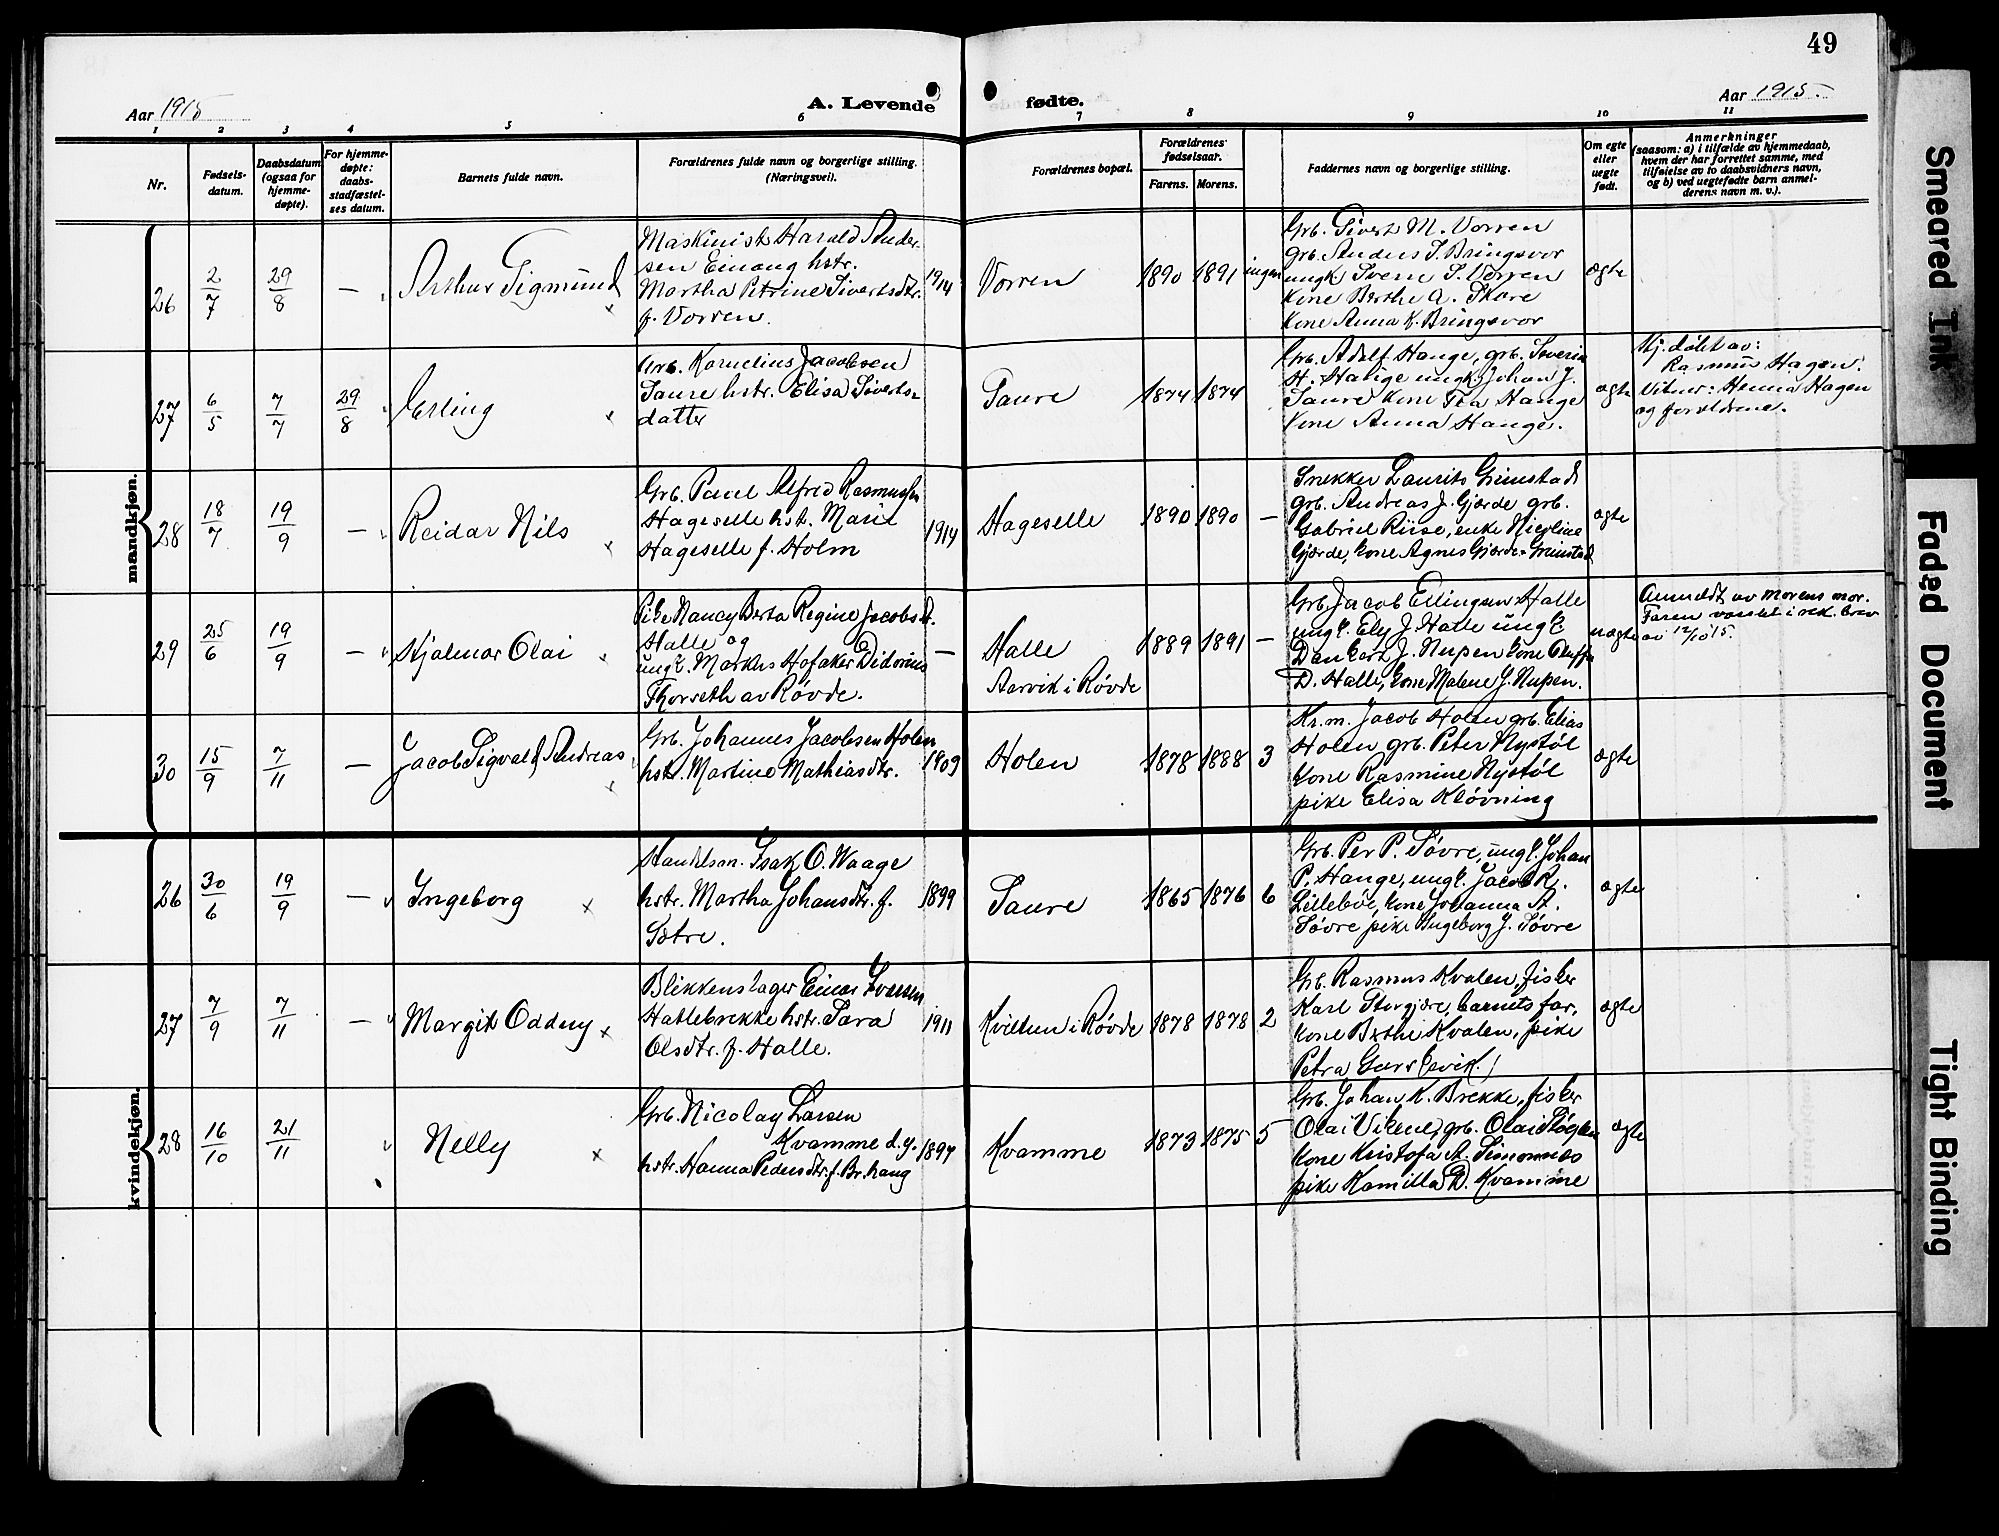 49
Aar 1915
A. Levende
fødte.
Aar 1915.
1 2 3 4 5 6 7 8 9 10 11
Nr.
Fødsels-
datum.
Daabsdatum
(ogsaa for
hjemme-
døpte).
For hjemme-
døpte:
daabs-
stadfæstel-
ses datum.
Barnets fulde navn.
Forældrenes fulde navn og borgerlige stilling.
(Næringsvei).
Forældrenes bopæl.
Forældrenes
fødselsaar.
Farens. Morens.
Faddernes navn og borgerlige stilling.
Om egte
eller
uegte
født.
Anmerkninger
(saasom: a) i tilfælde av hjemmedaab,
hvem der har forrettet samme, med
tilføielse av to daabsvidners navn,
og b) ved uegtefødte barn anmel-
derens navn m. v.).
mandkjøn.
26
2/7
29/8
—
Arthur Sigmund
Maskinist Harald Ander-
sen Einang hstr.
Martha Petrine Sivertsdtr.
f. Vorren.
1914
Vorren
1890 1891 ingen
Grb. Sivert M. Vorren
grb. Anders S. Bringsvor
ungk. Svenn S. Vorren
kone Berthe A. Skare
kone Anna K. Bringsvor
ægte
27
6/5
7/7
29/8
Erling
Grb. Kornelius Jacobsen
Saure hstr. Elisa Siverts-
datter
Saure
1874 1874
Grb. Adolf Hauge, grb. Severin
H. Hauge ungk. Johan J.
Saure kone Hauge
kone Anna Hauge.
ægte
Hj. døbt av:
Rasmus Hagen.
Vitner: Hanna Hagen
og foreldrene.
28
18/7
19/9
—
Reidar Nils
Grb. Paul Alfred Rasmussen
Hageselle hst. Marie
Hageselle f. Holm
1914
Hageselle
1890 1890 —
Snekker Laurits Grimstad
grb. Andreas J. Gjærde grb.
Gabriel Riise, enke Nicoline
Gjærde, kone Agnes Gjærde Grimstad
ægte
29
25/6
19/9
—
Hjalmar Olai
Pike Nancy Berta Regine Jacobsd.
Halle og
ungk. Markus Hofaker Didorius
Thorseth av Røvde.
—
Halle
Aarvik i Røvde
1889 1891 —
Grb. Jacob Ellingsen Halle
ungk. Ely J. Halle ungk.
Dankert J. Nupen kone Oluffa
D. Halle, kone Malene J. Nupen.
uægte
Anmeldt av morens mor.
Faren varslet i rek. brev
av 12/10 15.
30
15/9
7/11
—
Jacob Sigvald Andreas
Grb. Johannes Jacobsen Holen
hstr. Martine Mathiasdtr.
1909
Holen
1878 1888 3
Kr.m. Jacob Holen grb. Elias
Holen grb. Peter Nystøl
kone Rasmine Nystøl
pike Elisa Kløvning
ægte
kvindekjøn.
26
30/6
19/9
—
Ingeborg
Handelsm. Isak O. Waage
hstr. Martha Johansdtr. f.
Sætre.
1899
Saure
1865 1876 6
Grb. Per P. Søvre, ungk. Johan
P. Hauge, ungk. Jacob R.
Lillebøe, kone Johanna A.
Søvre pike Ingeborg J. Søvre
ægte
27
7/9
7/11
—
Margit Oddny
Blikkenslager Einar Iversen
Hattebrekke hstr. Sara
Olsdtr. f. Halle.
1911
Kvilhun i Røvde
1878 1878 2
Grb. Rasmus Kvalen, fisker
Karl Storgjære, barnets far,
kone Berthe Kvalen, pike
Petra Gurskevik.
ægte
28
16/10
21/11
Nelly
Grb. Nicolay Larsen
Kvamme d.y.
hstr. Hanna Pedersdtr. f. Br.haug
1897
Kvamme
1873 1875 5
Grb. Johan K. Brekke, fisker
Olai Vikene, grb. Olai
kone Kristofa A. Simonnes
pike Kamilla D. Kvamme
ægte
Smeared Ink
Faded Document
Tight Binding